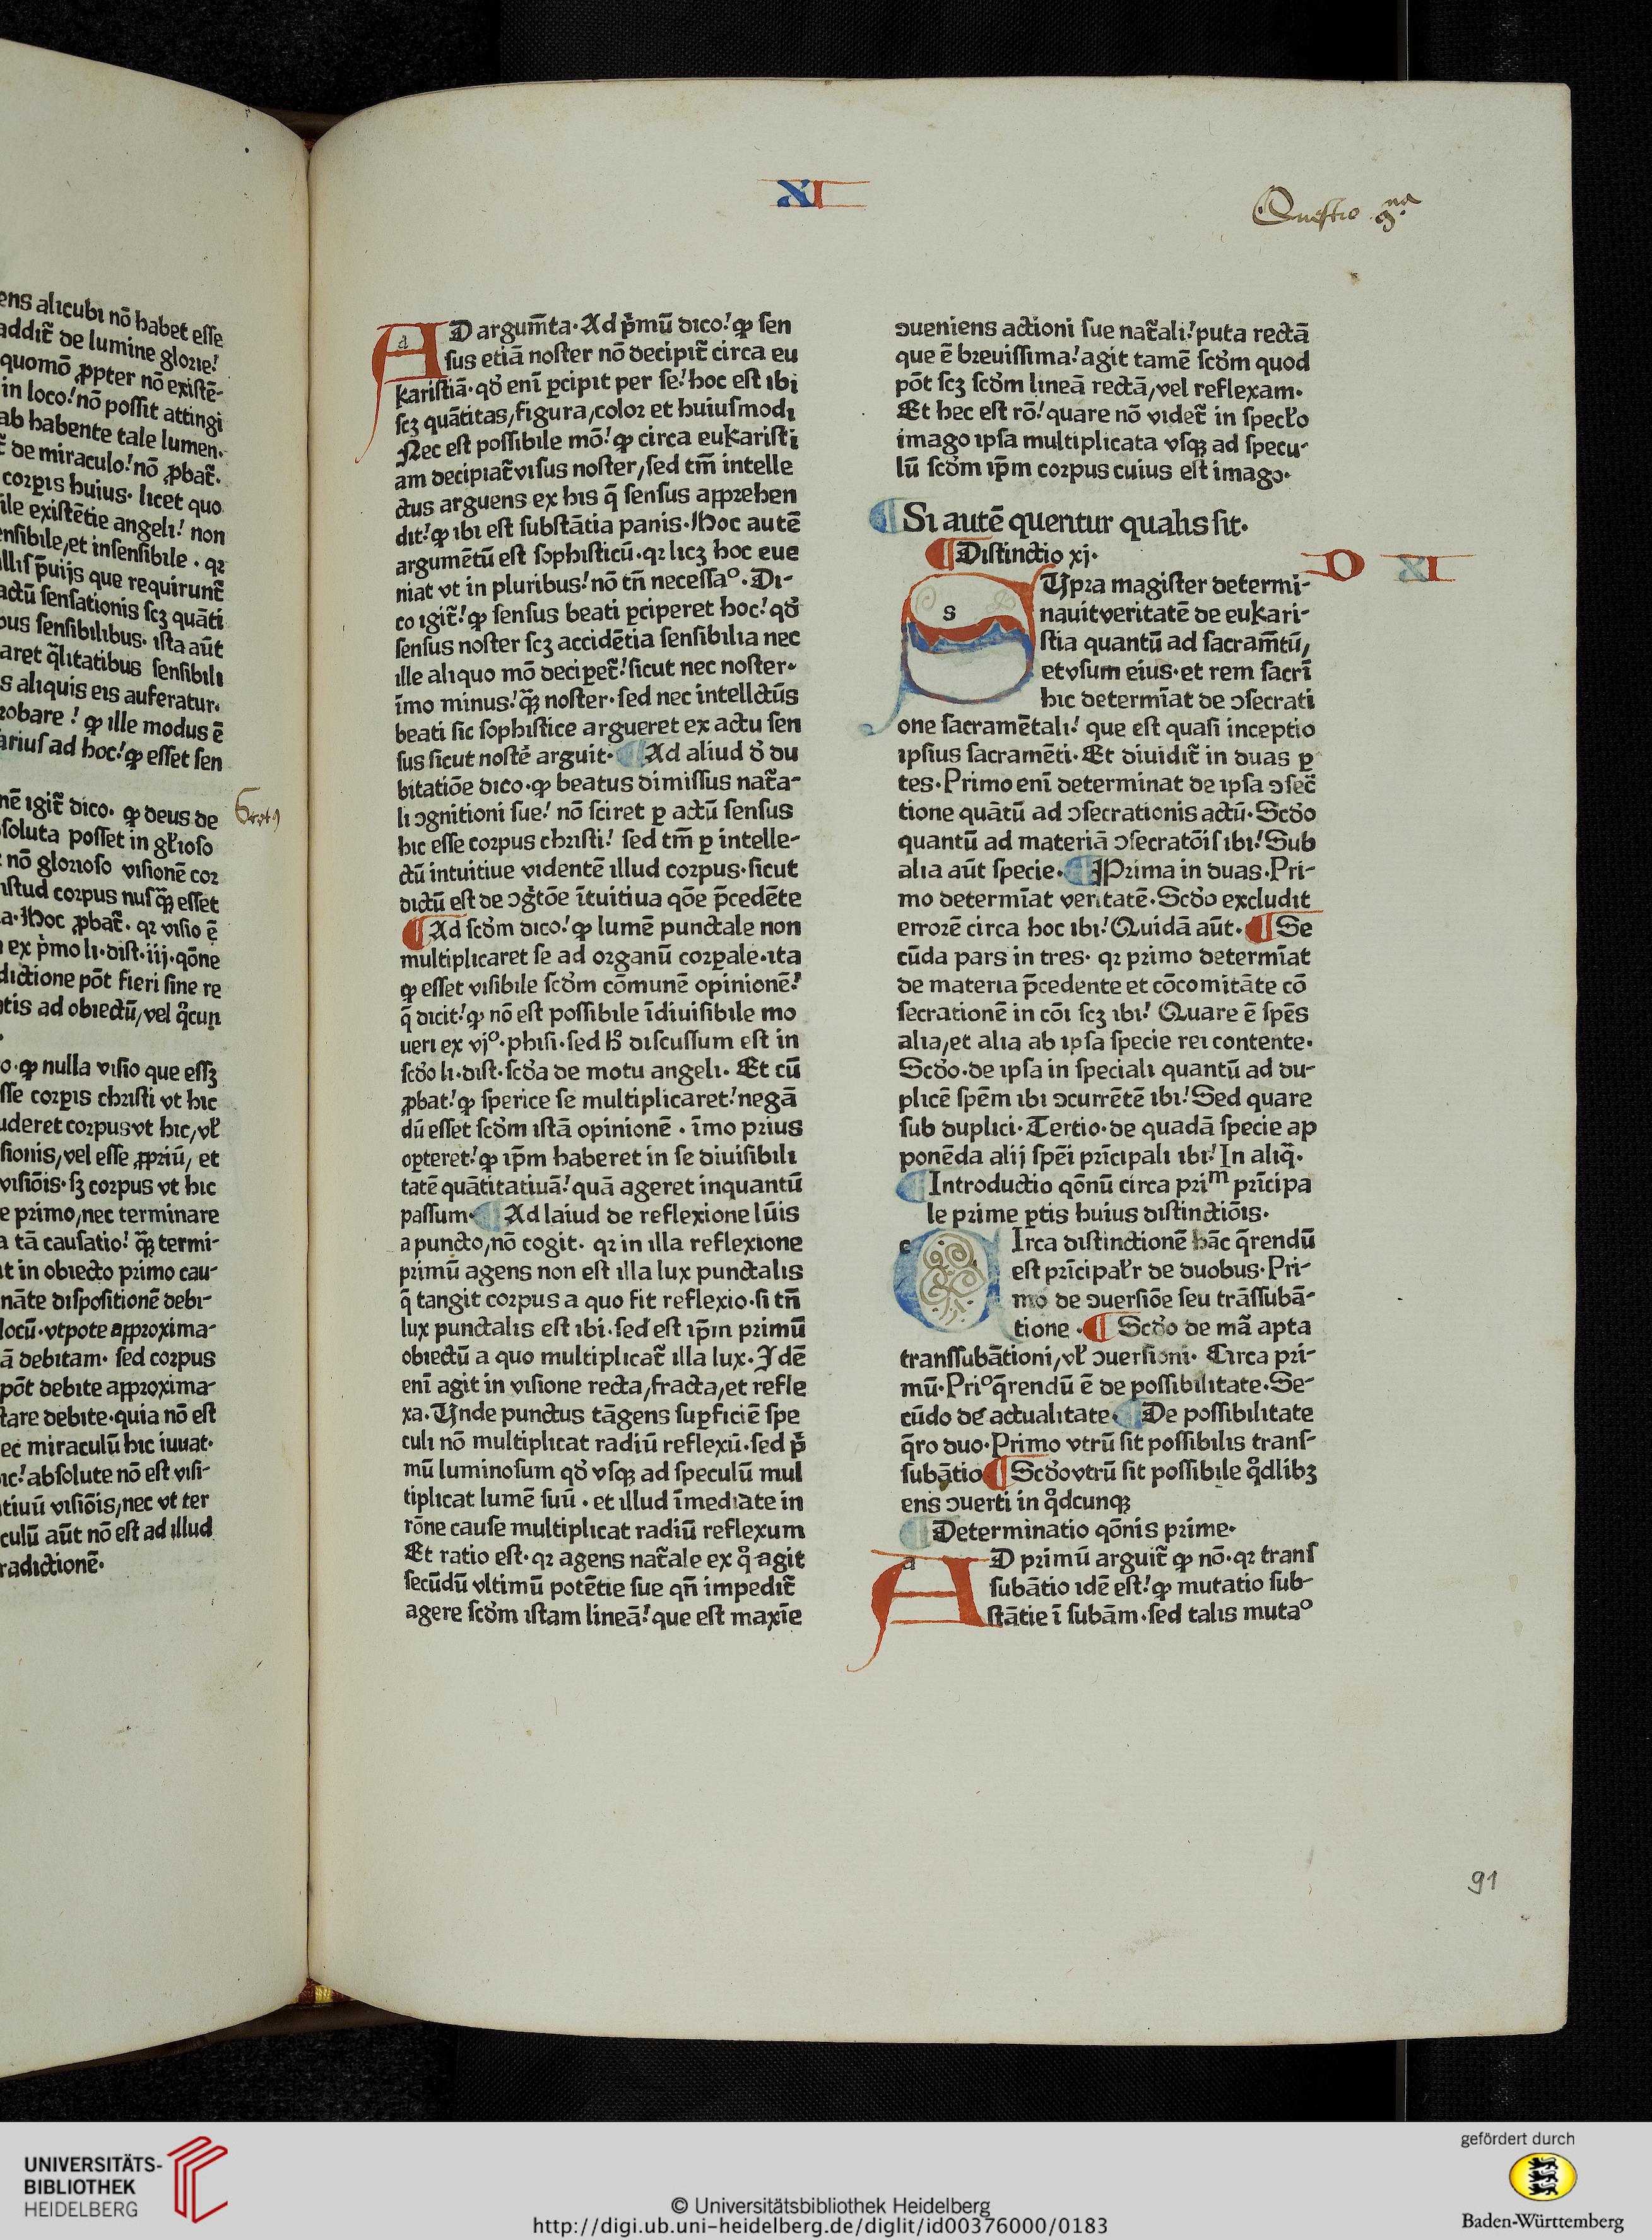 ens alicubi nō habet esse
addit᷑ de lumine glorie!
quomō ꝓpter nō existē-
in loco! nō possit attingi
ab habente tale lumen.
de miraculo! nō ꝓbat᷑.
corꝑis huius. licet quo
ile existētie angeli! non
ensibile, et insensibile. qꝛ
illis p̄uijs que requirunt᷑
actū sensationis scꝫ quāti
bus sensibilibus. ista aūt
aret q̄litatibus sensibili
s aliquis eis auferatur.
robare! ꝙ ille modus ē
arius ad hoc! ꝙ esset sen
nē igit᷑ dico. ꝙ deus de
soluta posset in gl'ioso
nō glorioso visionē cor
istud corpus nusꝗ̄ esset
a. Hoc ꝓbat᷑. qꝛ visio ē
ex p̄mo li. dist. iij. qōne
dictione pōt fieri sine re
tis ad obiectū, vel qͥcun
o. ꝙ nulla visio que essꝫ
sse corꝑis christi vt hic
uderet corpus vt hic, vl'
sionis, vel esse ꝓpriū, et
visiōis. sꝫ corpus vt hic
e primo, nec terminare
a tā causatio! ꝗ̄ termi-
t in obiecto primo cau-
nāte dispositionē debi-
locū. vtpote approxima-
ā debitam. sed corpus
pōt debite approxima-
tare debite. quia nō est
ec miraculū hic iuuat.
ic! absolute nō est visi-
tiuū visiōis, nec vt ter
culū aūt nō est ad illud
radictionē.
XI
Questio
AD argum̄ta. Ad p̄mū dico! ꝙ sen
sus etiā noster nō decipit᷑ circa eu
karistiā. qd̕ enī ꝑcipit per se! hoc est ibi
scꝫ quātitas, figura, color et huiusmodi
Nec est possibile mō! ꝙ circa eukaristi
am decipiat᷑ visus noster, sed tm̄ intelle
ctus arguens ex his q̄ sensus apprehen
dit! ꝙ ibi est substātia panis. Hoc autē
argumētū est sophisticū. qꝛ licꝫ hoc eue
niat vt in pluribus! nō tn̄ necessaᵒ. Di-
co igit᷑! ꝙ sensus beati ꝑciperet hoc! qd̕
sensus noster scꝫ accidētia sensibilia nec
ille aliquo mō deciperet᷑! sicut nec noster.
īmo minus! ꝗ̄ noster. sed nec intellctūs
beati sic sophistice argueret ex actu sen
sus sicut nostē arguit. Ad aliud d̕ du
bitatiōe dico. ꝙ beatus dimissus nat᷑a-
li ꝯgnitioni sue! nō sciret ꝑ actū sensus
hic esse corpus christi! sed tm̄ ꝑ intelle-
ctū intuitiue videntē illud corpus. sicut
dictū est de ꝯgᷓtōe ītuitiua qōe p̄cedēte
Ad scd̕m dico! ꝙ lumē punctale non
multiplicaret se ad organū corꝑale. ita
ꝙ esset visibile scd̕m cōmunē opinionē!
q̄ dicit! ꝙ nō est possibile īdiuisibile mo
ueri ex vjᵒ. phisi. sed hͦ discussum est in
scd̕o li. dist. scd̕a de motu angeli. Et cū
ꝓbat! ꝙ sperice se multiplicaret! negā
dū esset scd̕m istā opinionē. īmo prius
oꝑteret! ꝙ ip̄m haberet in se diuisibili
tatē quātitatiuā! quā ageret inquantū
passum. Ad laiud de reflexione lūis
a puncto, nō cogit. qꝛ in illa reflexione
primū agens non est illa lux punctalis
q̄ tangit corpus a quo fit reflexio. si tn̄
lux punctalis est ibi. sed est ip̄m primū
obiectū a quo multiplicat᷑ illa lux. Idē
enī agit in visione recta, fracta, et refle
xa. Unde punctus tāgens suꝑficiē spe
culi nō multiplicat radiū reflexū. sed p̄
mū luminosum qd̕ vsqꝫ ad speculū mul
tiplicat lumē suū. et illud īmediate in
rōne cause multiplicat radiū reflexum
Et ratio est. qꝛ agens nat᷑ale ex qͦ agit
secūdū vltimū potētie sue qn̄ impedit᷑
agere scd̕m istam lineā! que est maxīe
ꝯueniens actioni sue nat᷑ali! puta rectā
que ē breuissima! agit tamē scd̕m quod
pōt scꝫ scd̕m lineā rectā, vel reflexam.
Et hec est rō! quare nō videt᷑ in specl'o
imago ipsa multiplicata vsqꝫ ad specu-
lū scd̕m ip̄m corpus cuius est imago.
Si autē quentur qualis sit.
Distinctio xj.
D XI
SUpra magister determi-
nauit veritatē de eukari-
stia quantū ad sacram̄tū,
et vsum eius. et rem sacrī
hic determīat de ꝯsecrati
one sacramētali! que est quasi inceptio
ipsius sacramēti. Et diuidit᷑ in duas ꝑ
tes. Primo enī determinat de ipsa ꝯsec᷑
tione quātū ad ꝯsecrationis actū. Scd̕o
quantū ad materiā ꝯsecratōis ibi! Sub
alia aūt specie. Prima in duas. Pri-
mo determīat veritatē. Scd̕o excludit
errorē circa hoc ibi! Quidā aūt. Se
cūda pars in tres. qꝛ primo determīat
de materia p̄cedente et cōcomitāte cō
secrationē in cōi scꝫ ibi! Quare ē spēs
alia, et alia ab ipsa specie rei contente.
Scd̕o. de ipsa in speciali quantū ad du-
plicē spēm ibi ꝯcurrētē ibi! Sed quare
sub duplici. Tertio. de quadā specie ap
ponēda alij spēi prīcipali ibi! In aliq̄.
Introductio qōnū circa priᵐ prīcipa
le prime ꝑtis huius distinctiōis.
CIrca distinctionē hāc q̄rendū
est prīcipal'r de duobus. Pri-
mo de ꝯuersiōe seu trāssubā-
tione. Scd̕o de mā apta
transsubātioni, vl' ꝯuersioni. Circa pri-
mū. Priᵒ q̄rendū ē de possibilitate. Se-
cūdo de actualitate. De possibilitate
q̄ro duo. Primo vtrū sit possibilis trans-
subātio Scd̕o vtrū sit possibile qͦdlibꝫ
ens ꝯuerti in qͦdcunqꝫ
Determinatio qōnis prime.
AD primū arguit᷑ ꝙ nō. qꝛ trans
subātio idē est! ꝙ mutatio sub-
stātie ī subām. sed talis mutaᵒ
91
UNIVERSITÄTS-
BIBLIOTHEK
HEIDELBERG
© Universitätsbibliothek Heidelberg
http://digi.ub.uni-heidelberg.de/diglit/id00376000/0183
gefördert durch
Baden-Württemberg